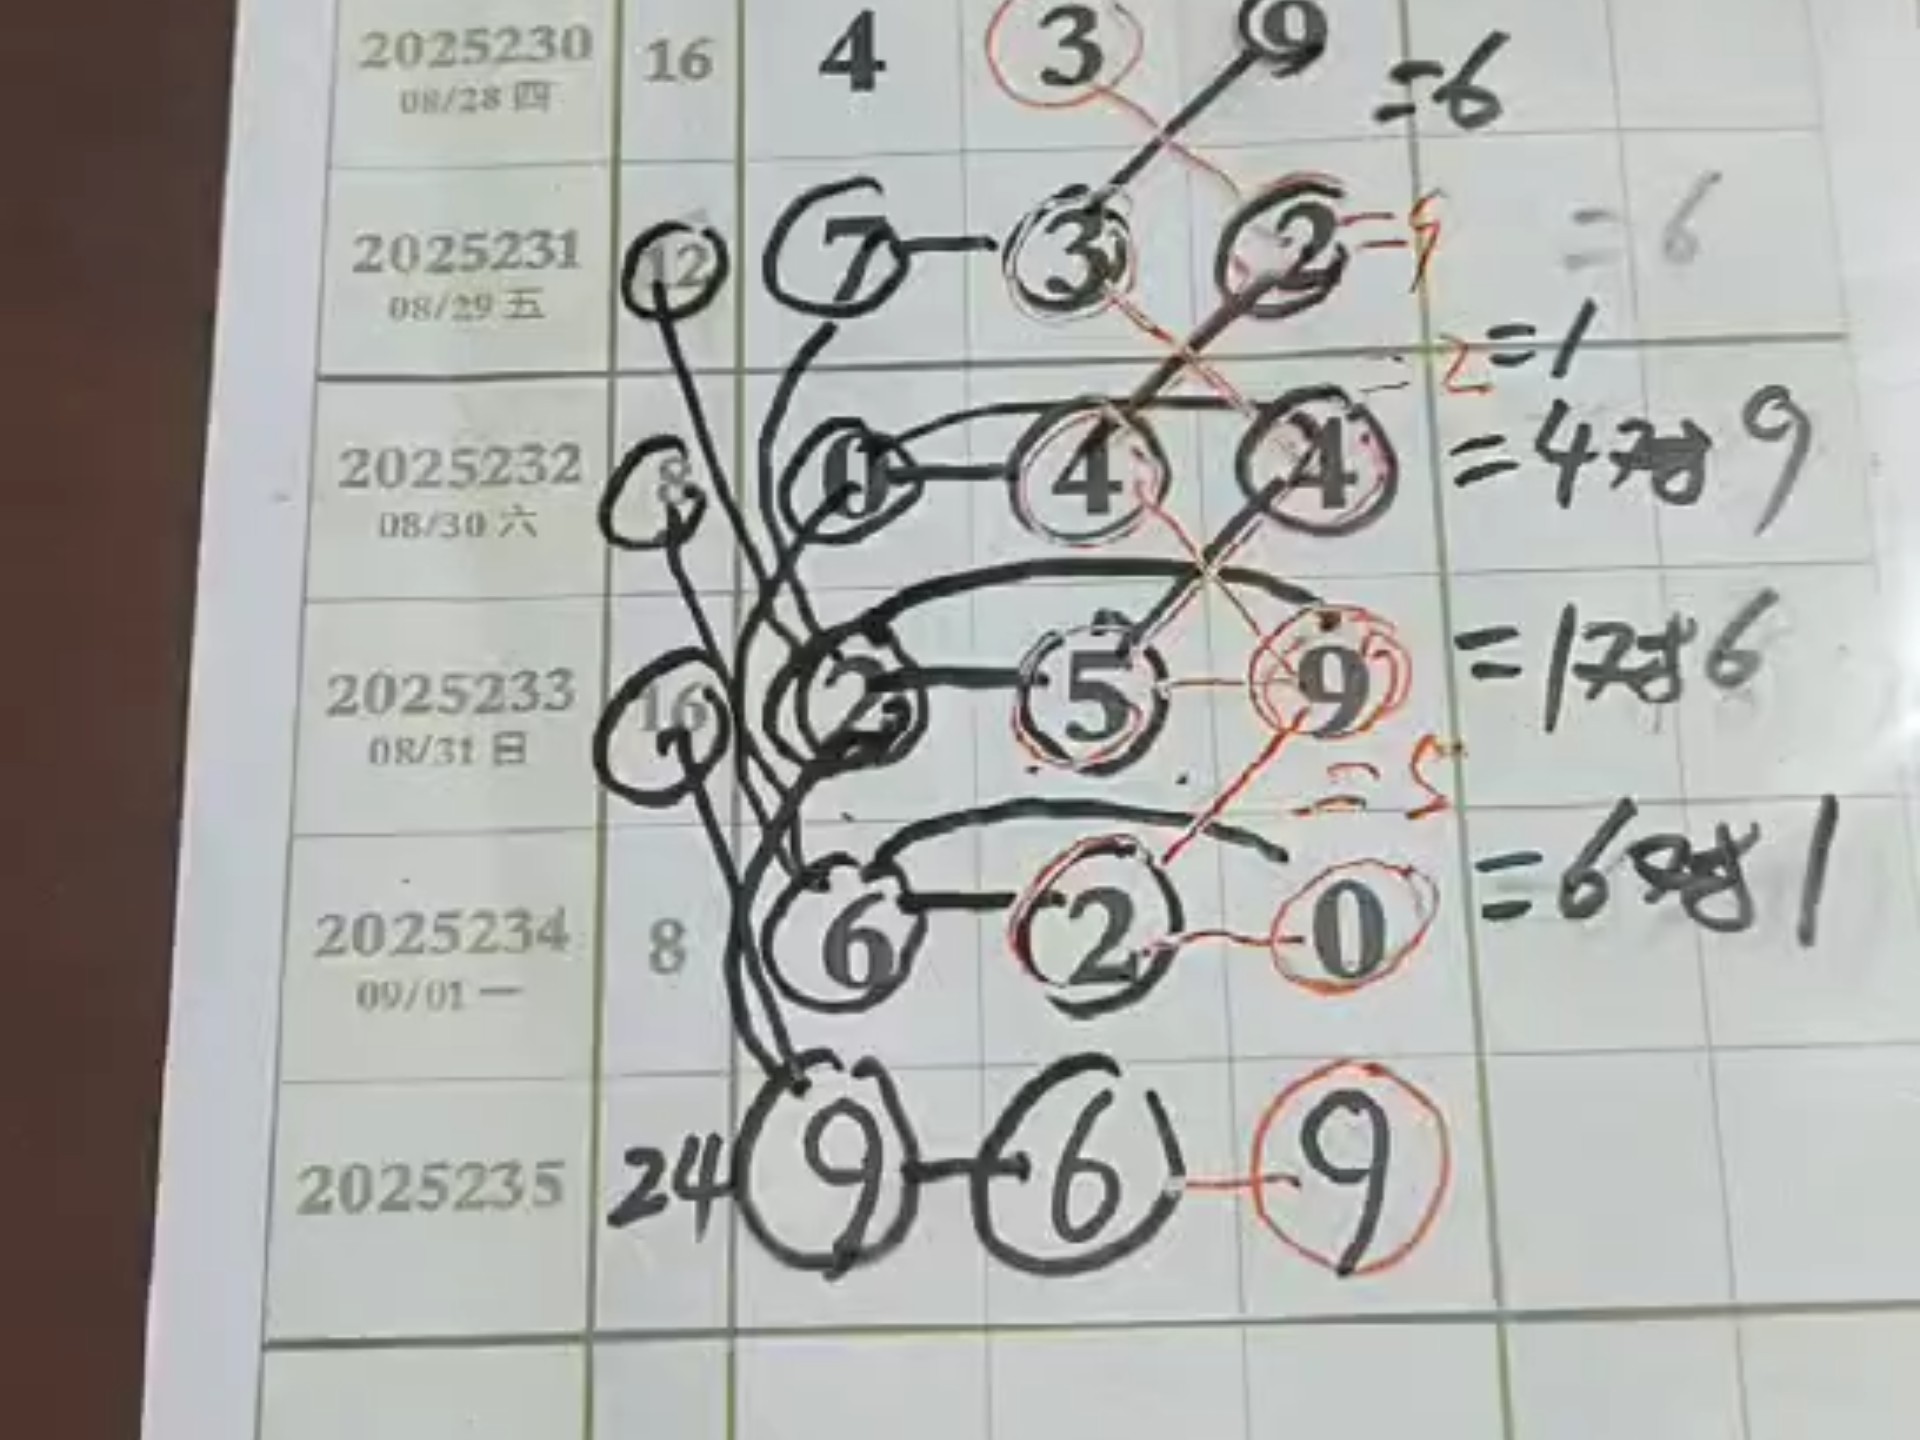 2025230 16 4 3 9 =6
08/28 四
2025231 12 7 3 2 =6
08/29 五
2 =1
2025232 8 0 4 4 =4 9
08/30 六
2025233 16 2 5 9 =1 6
08/31 日
=5
2025234 8 6 2 0 =6 1
09/01 一
2025235 24 9 6 9